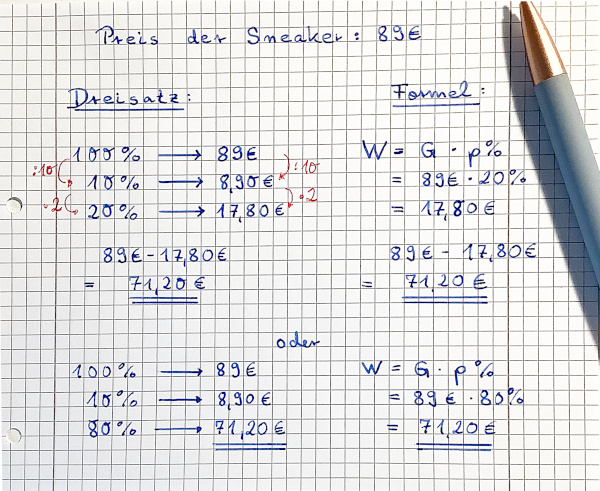 Preis der Sneaker: 89€
Dreisatz:
100% → 89€
:10 10% → 8,90€ :10
·2 20% → 17,80€ ·2
89€ - 17,80€
= 71,20€
Formel:
W = G · p%
= 89€ · 20%
= 17,80€
89€ - 17,80€
= 71,20€
oder
100% → 89€
10% → 8,90€
80% → 71,20€
W = G · p%
= 89€ · 80%
= 71,20€